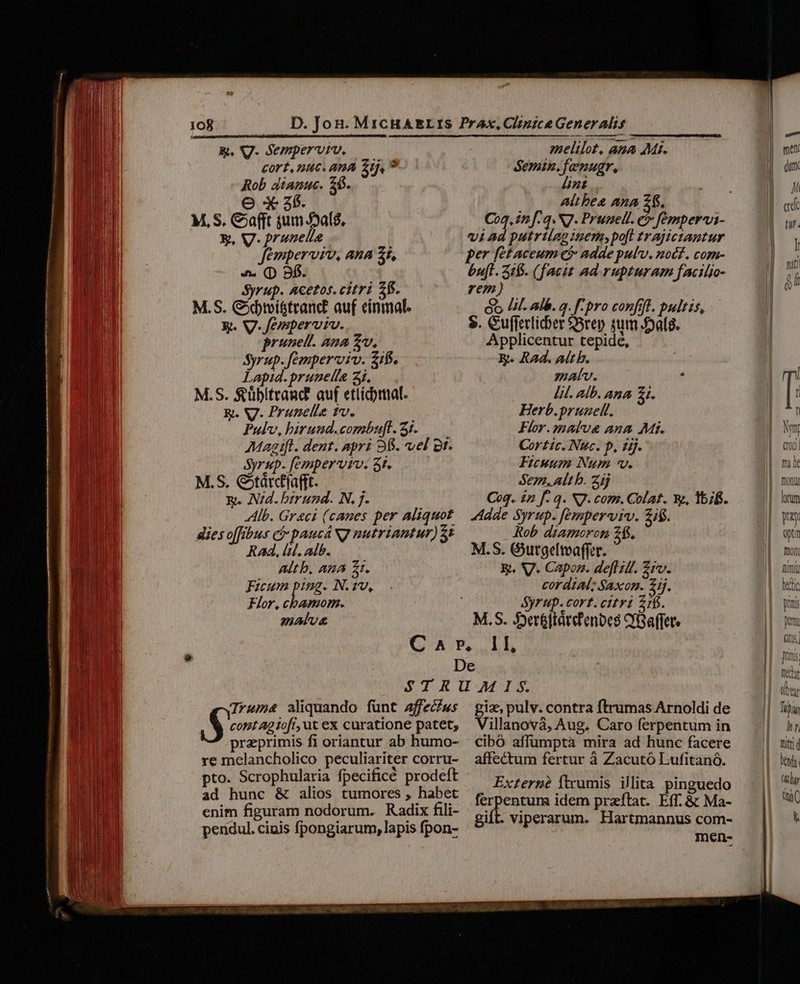 108 D. Joh. Michaelis Prax. Clinicæ Generalis
℞. ▽. Sempervivi.
cort. nuc. ana ℥ij.
Rob dianuc. ℥ß.
M.S. Safft zum Hals.
℞. ▽. prunellæ
sempervivi, ana ℥i,
Syrup. acetos. citri ℥ß.
M.S. Schwitztranck auf einmal.
℞. ▽. sempervivi.
prunell. ana ℥v.
Syrup. sempervivi. ℥iß.
Lapid. prunellæ ʒi.
M.S. Kühltranck auf etlichmal.
℞. ▽. Prunellæ iv.
Pulv. hirund. combust. ʒi.
Magist. dent. apri ℈ß. vel ℈i.
Syrup. sempervivi. ℥i.
M.S. Stärcksafft.
℞. Nid. hirund. N. j.
Alb. Græci (canes per aliquot
dies offibus & paucâ ▽ nutriantur) ℥i
Rad. lil. alb.
alth. ana ℥i.
Ficum ping. N. iv,
Flor. chamom.
malvæ
melilot. ana Mi.
Semin. fœnugr.
lini
altheæ ana ℥ß.
Coq. in f. q. ▽. Prunell. & sempervi-
vi ad putrilaginem, post trajiciantur
per setaceum & adde pulv. noct. com-
bust. ʒiß. (facit ad rupturam facilio-
rem)
lil. alb. q. s. pro consist. pultis,
S. Eusserlicher Brey zum Hals.
Applicentur tepide,
℞. Rad. alth.
malv.
lil. alb. ana ℥i.
Herb. prunell.
Flor. malvæ ana Mi.
Cortic. Nuc. p. iij.
Ficuum Num v.
Sem. alth. ʒij
Coq. in f. q. ▽. com. Colat. ℞. ℔iß.
Adde Syrup. sempervivi. ℥iß.
Rob diamoron ℥ß.
M.S. Gurgelwasser.
℞. ▽. Capon. destill. ℥iv.
cordial: Saxon. ℥ij.
Syrup. cort. citri ℥iß.
M.S. Hertzstärckendes Wasser.
Cap. II,
De
STRUMIS.
Strumæ aliquando sunt affectus
contagiosi, ut ex curatione patet,
præprimis si oriantur ab humo-
re melancholico peculiariter corru-
pto. Scrophularia specificè prodest
ad hunc & alios tumores, habet
enim figuram nodorum. Radix fili-
pendul. cinis spongiarum, lapis spon-
giæ, pulv. contra strumas Arnoldi de
Villanovâ, Aug. Caro serpentum in
cibô assumpta mira ad hunc facere
affectum fertur â Zacutô Lusitanô.
Externè strumis illita pinguedo
serpentum idem præstat. Ess. & Ma-
gist. viperarum. Hartmannus com-
men-